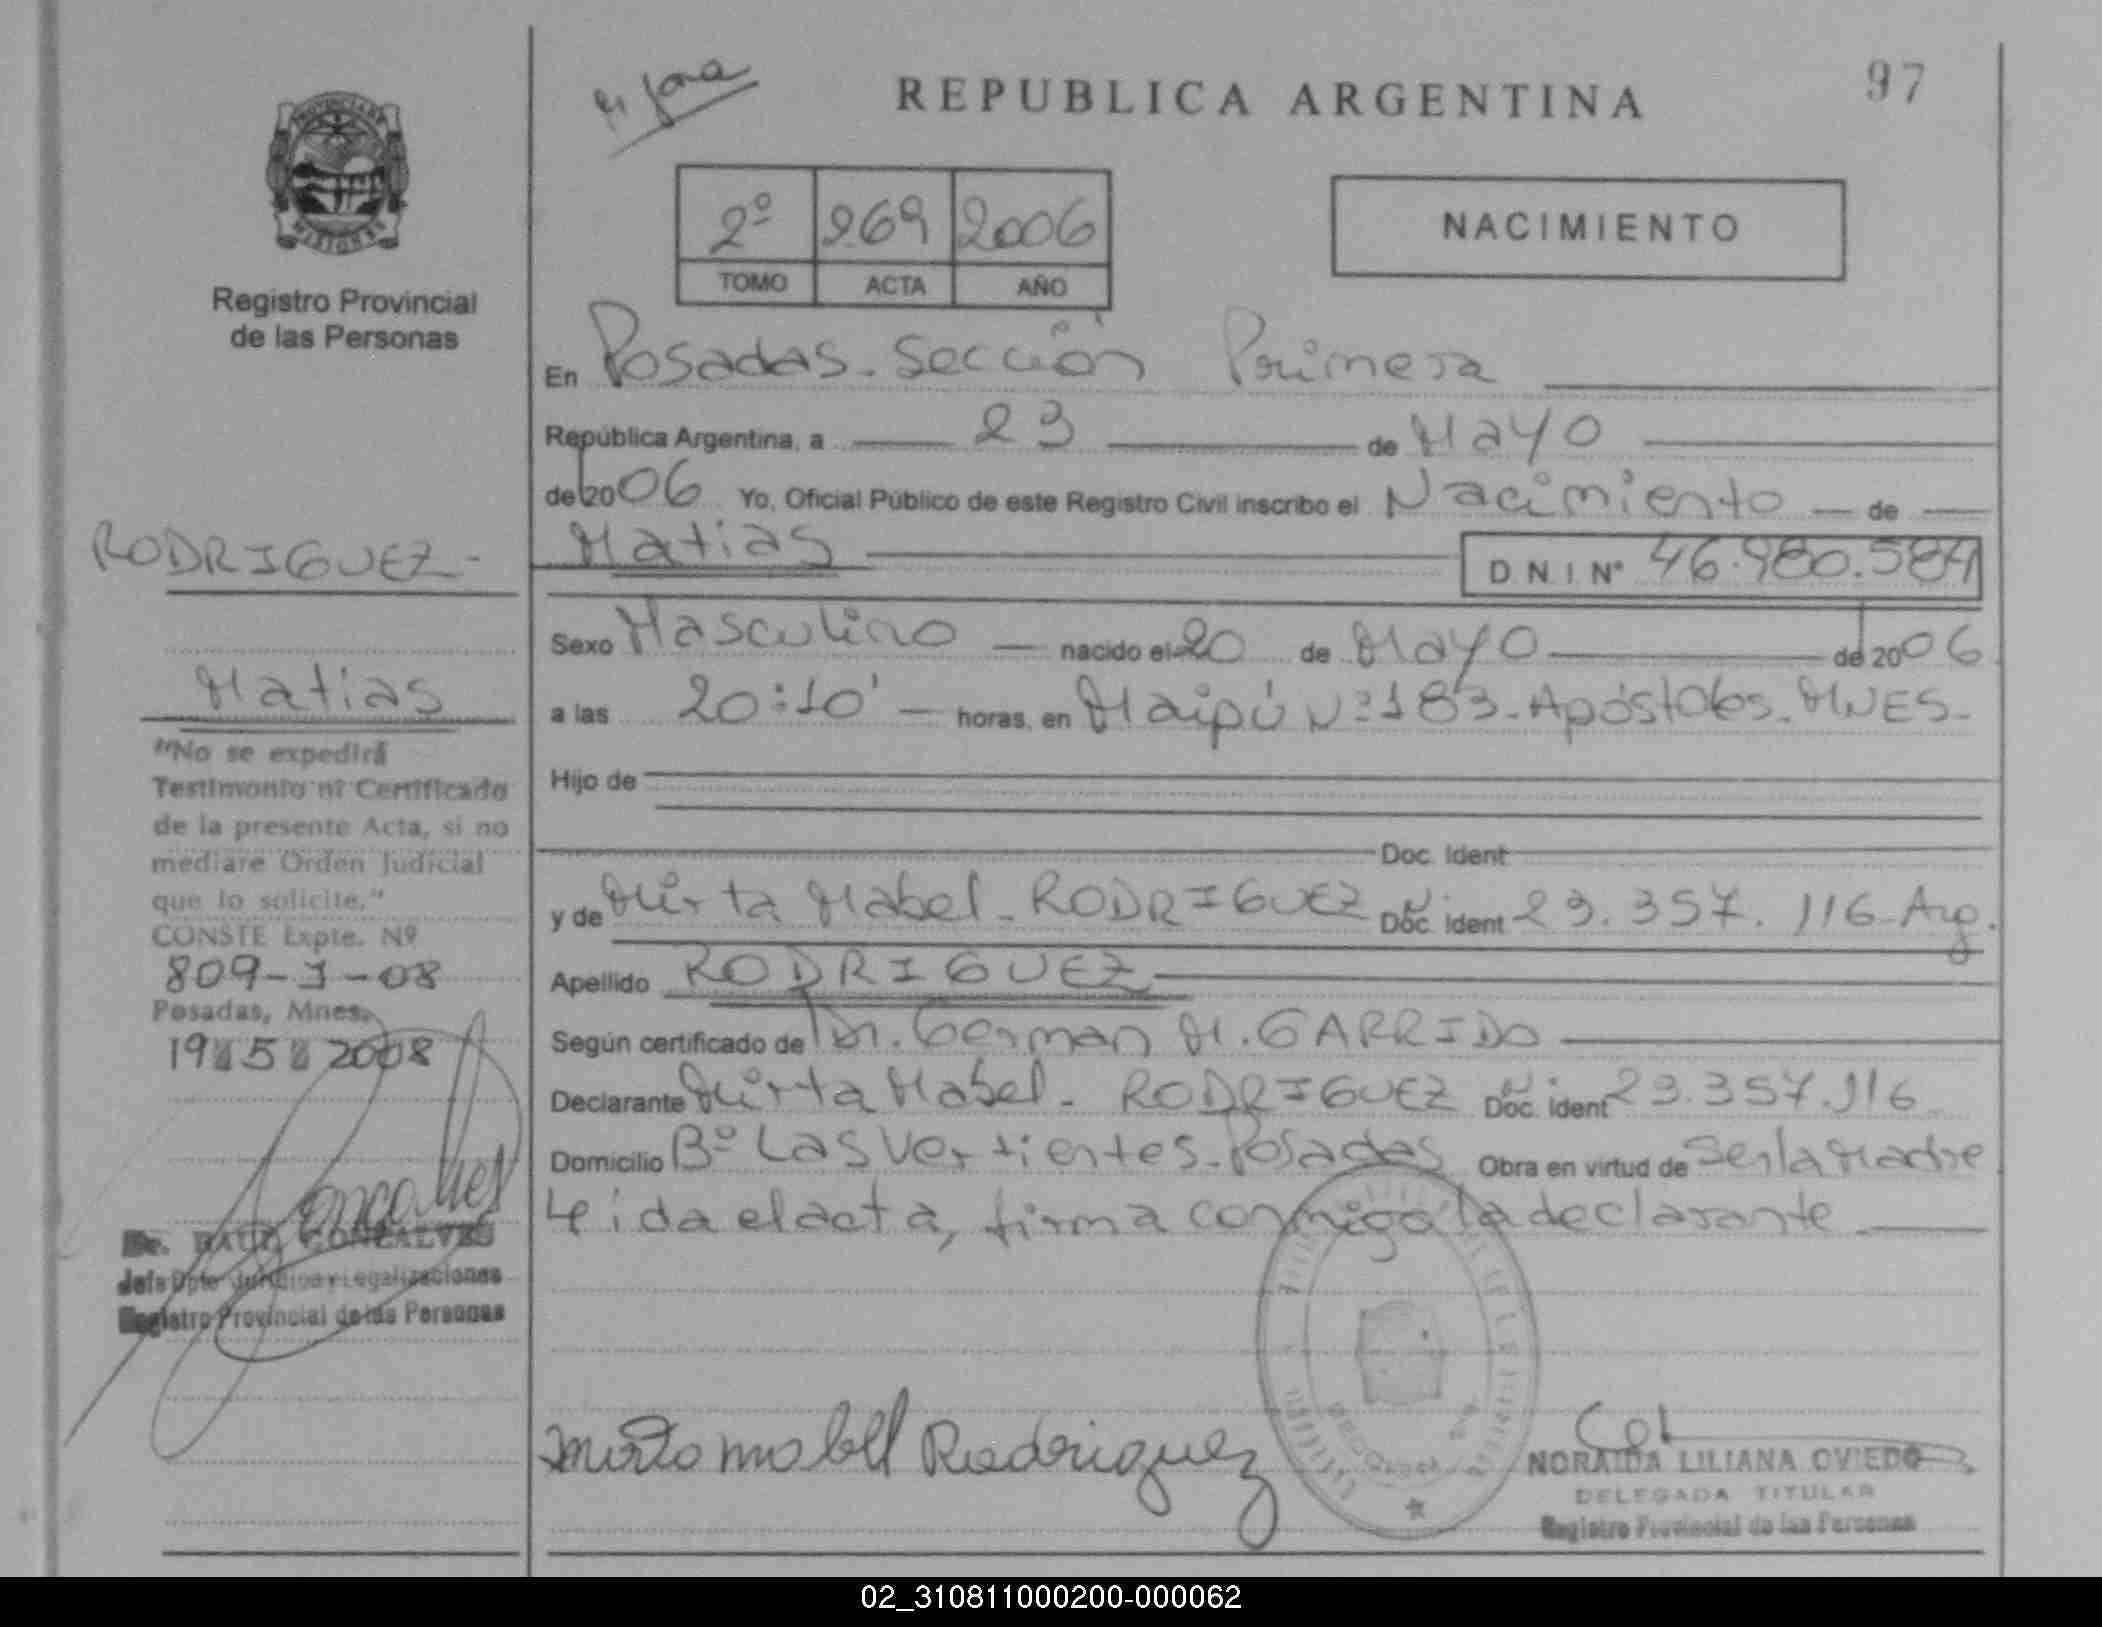 REPUBLICA ARGENTINA
97
PROVINCIA DE
MISIONES
Registro Provincial
de las Personas
2º 269 2006
TOMO ACTA AÑO
NACIMIENTO
En Posadas - Sección Primera
República Argentina, a 23 de Mayo
de 2006 Yo, Oficial Público de este Registro Civil inscribo el Nacimiento de
Matias D.N.I. Nº 46.980.584
Sexo Masculino nacido el 20 de Mayo de 2006
a las 20:10' horas, en Maipú Nº 183 - Apóstoles. MNES -
Hijo de
Doc. Ident
y de Mirta Mabel - RODRIGUEZ Doc. Ident 23.357.116 - Arg.
Apellido RODRIGUEZ
Según certificado de Dr. German M. GARRIDO
Declarante Mirta Mabel - RODRIGUEZ Doc. Ident 23.357.116
Domicilio Bº Las Vertientes - Posadas Obra en virtud de Ser la Madre
Leida el acta, firma conmigo la declarante
Mirta Mabel Rodriguez
NORAIDA LILIANA OVIEDO
DELEGADA TITULAR
Registro Provincial de las Personas
RODRIGUEZ -
Matias
"No se expedirá
Testimonio ni Certificado
de la presente Acta, si no
mediare Orden Judicial
que lo solicite."
CONSTE Expte. Nº
809-J-08
Posadas, Mnes.
19 5 2008
Dr. RAUL GONZALVES
Jefe Dpto Jurídico y Legalizaciones
Registro Provincial de las Personas
02_310811000200-000062